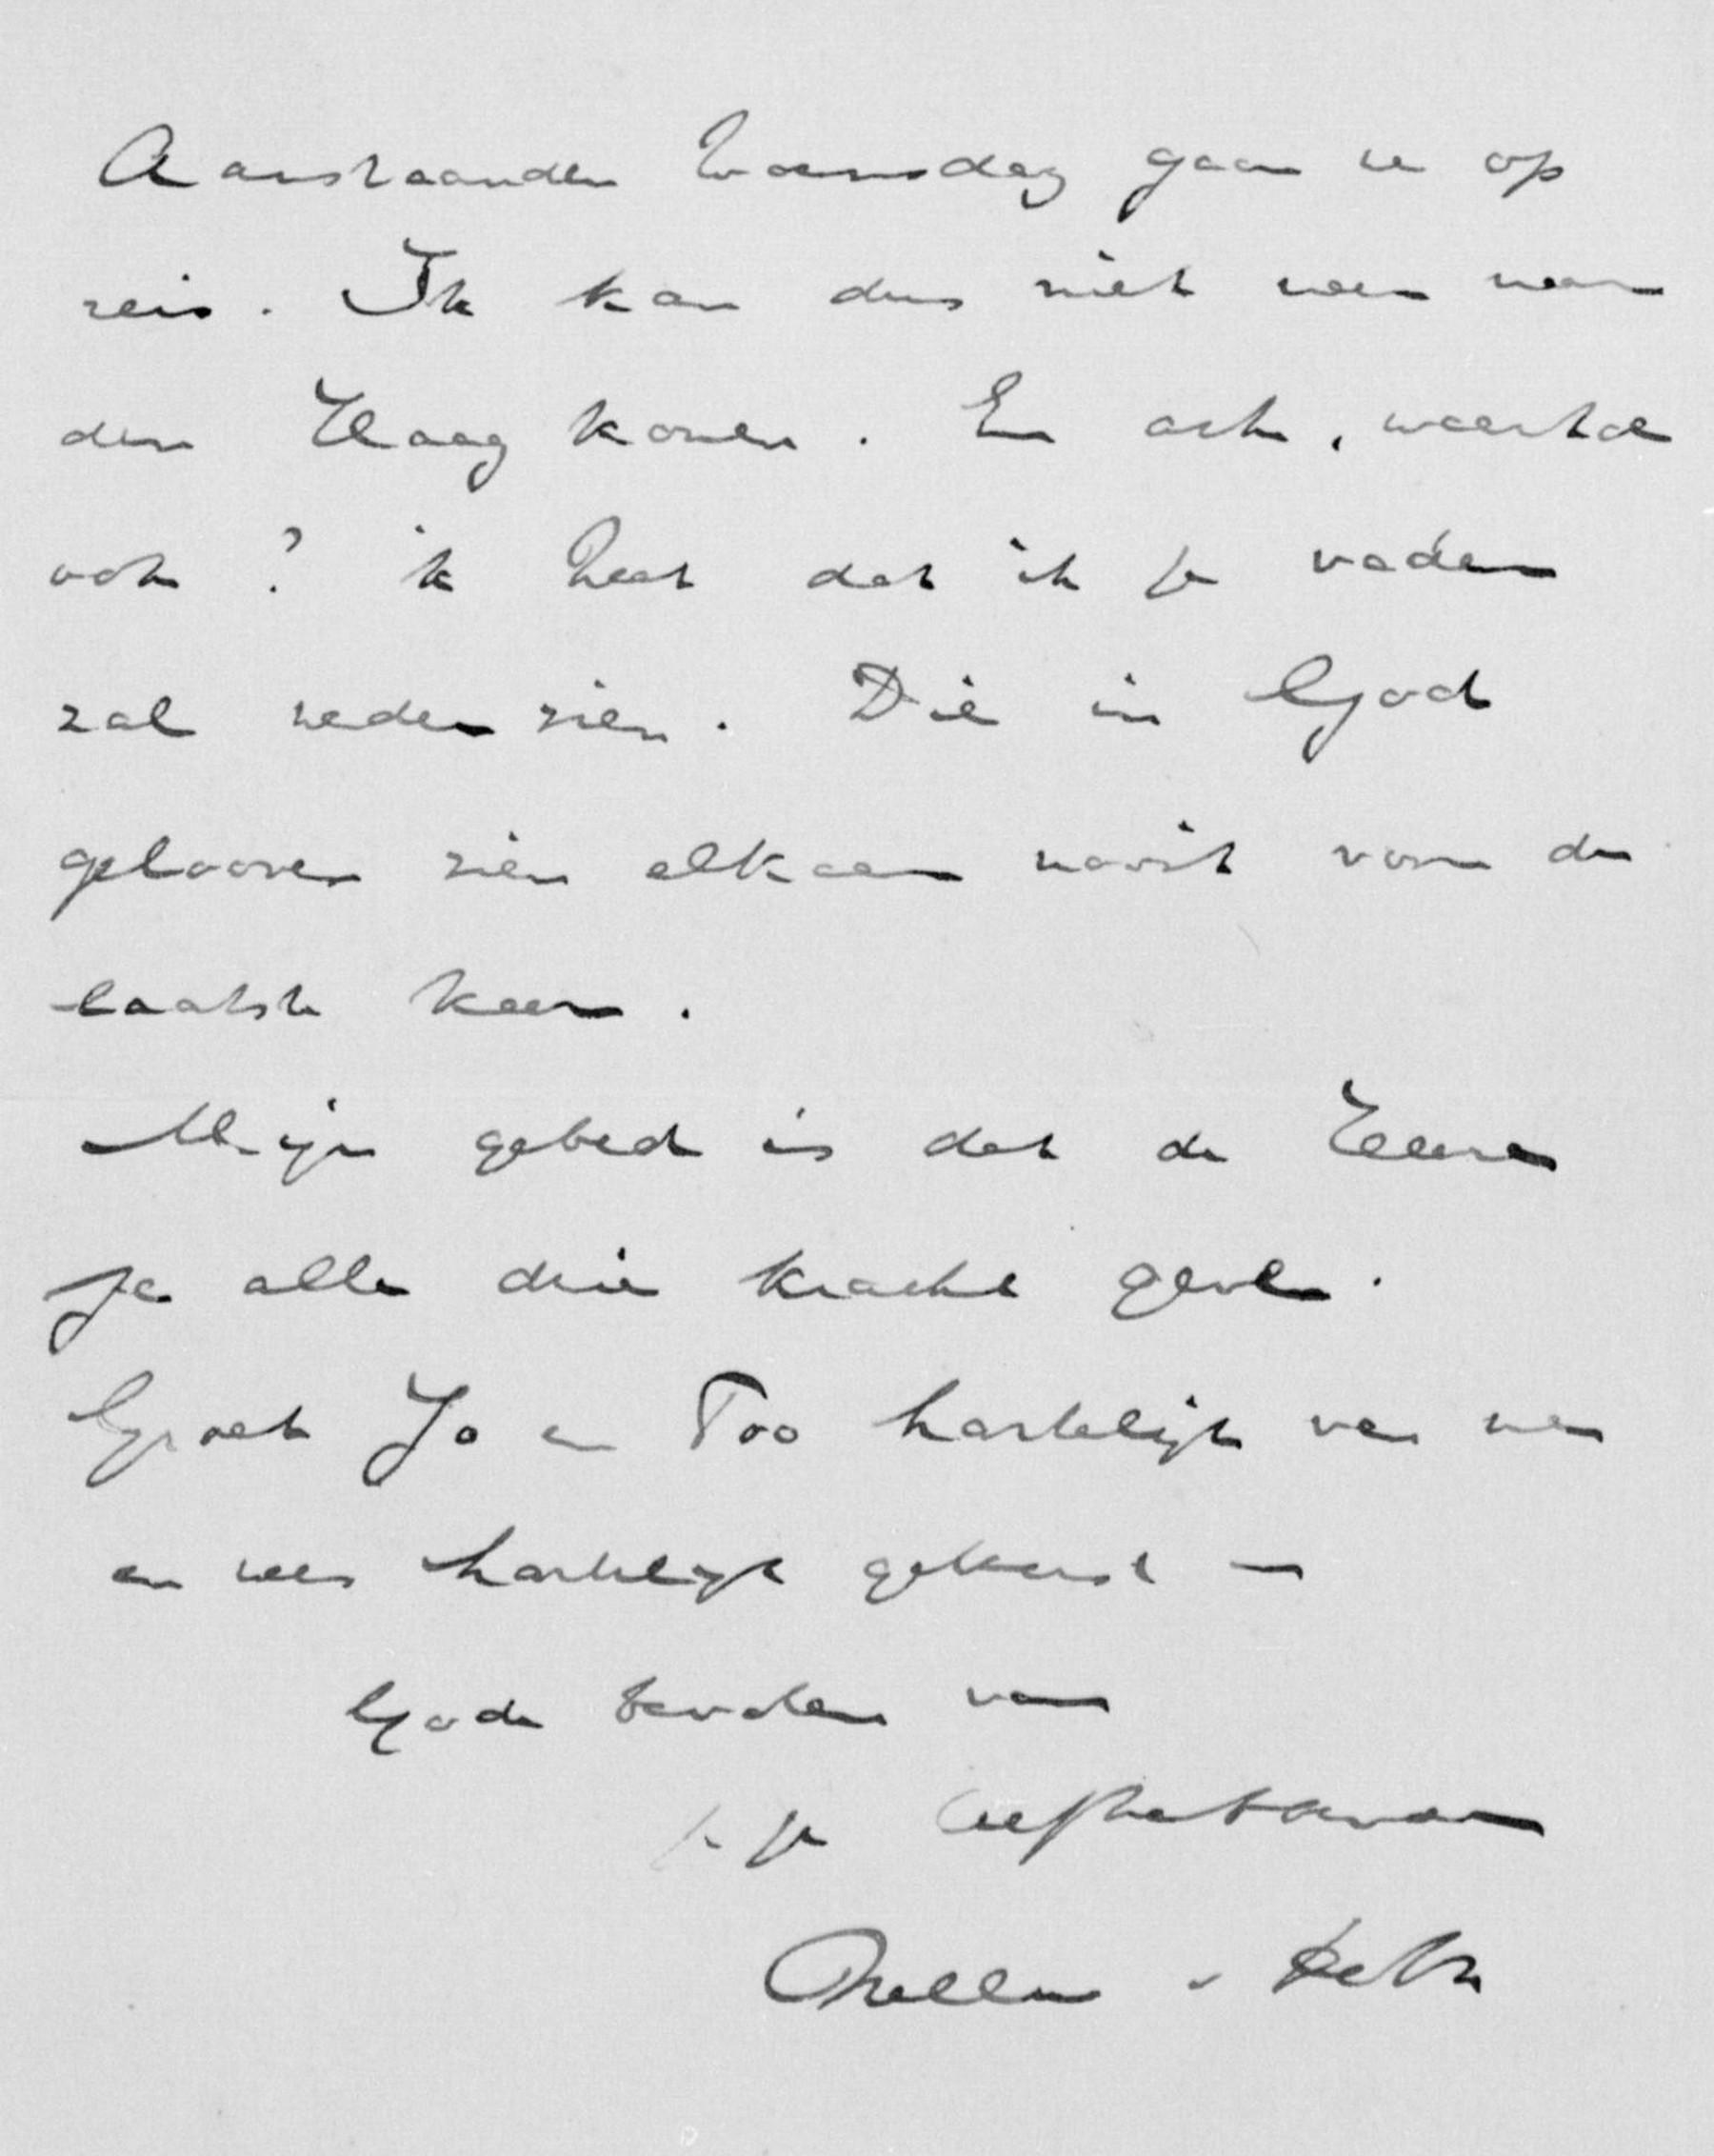 Aanstaanden Woensdag gaan we op
reis. Ik kan dus niet meer naar
den Haag komen. En ach, waartoe
ook? ik weet dat ik je vader
zal wederzien. Die in God
gelooven zien elkaar nooit voor de
laatste keer.
Mijn gebed is dat de Heere
je alle drie kracht geve.
Groet Jo en Too hartelijk van me
en wees hartelijk gekust —
Gode bevolen van
je liefhebbende